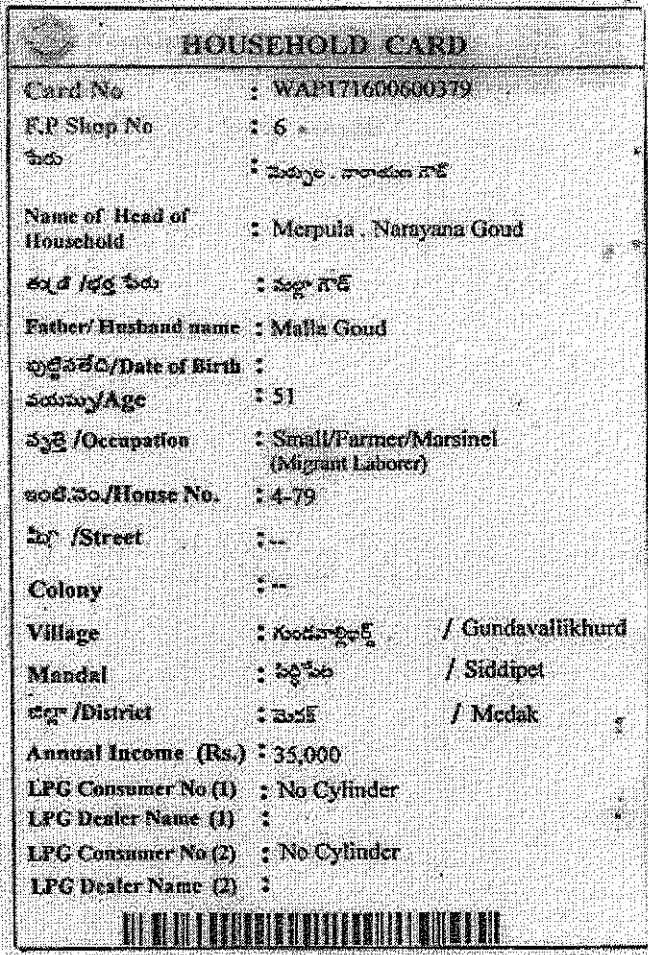 HOUSEHOLD CARD
Card No : WAP171600600379
F.P Shop No : 6
పేరు : మెర్పుల . నారాయణ గౌడ్
Name of Head of Household : Merpula . Narayana Goud
తండ్రి /భర్త పేరు : మల్లా గౌడ్
Father/ Husband name : Malla Goud
పుట్టినతేది/Date of Birth :
వయస్సు/Age : 51
వృత్తి /Occupation : Small/Farmer/Marsinel
(Migrant Laborer)
ఇంటి.నెం./House No. : 4-79
వీధి /Street : --
Colony : --
Village : గుండవాల్లిఖుర్ద్ / Gundavallikhurd
Mandal : సిద్దిపేట / Siddipet
జిల్లా /District : మెదక్ / Medak
Annual Income (Rs.) : 35,000
LPG Consumer No (1) : No Cylinder
LPG Dealer Name (1) :
LPG Consumer No (2) : No Cylinder
LPG Dealer Name (2) :